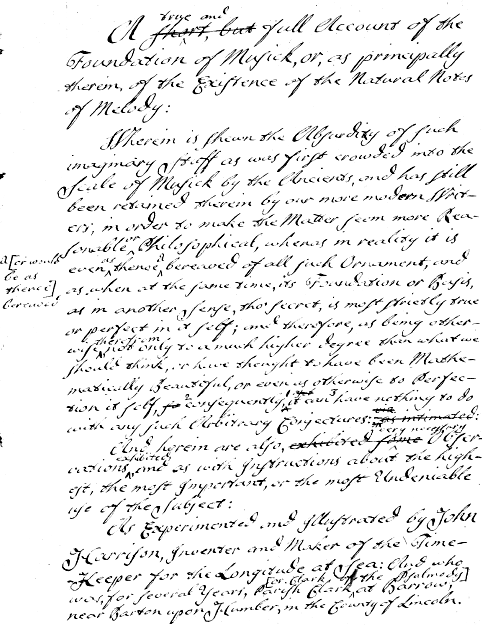 true and
A short, but full Account of the
Foundation of Musick, or, as principally
therein, of the Existence of the Natural Notes
of Melody:
Wherein is shewn the Absurdity of such
imaginary stuff as was first crowded into the
Scale of Musick by the Ancients, and has still
been retained therein by our more modern Writ-
ers, in order to make the Matter seem more Rea-
sonable or Philosophical, whenas in reality it is
even as thence bereaved of all such Ornament, and
[or would
be as
thence]
bereaved
as when at the same time, its Foundation or Basis,
as in another sense, tho' secret, is most strictly true
or perfect in it self; and therefore, as being other-
wise therefrom not only to a much higher degree than what we
should think, or have thought to have been Mathe-
matically Beautiful, or even as otherwise to Perfec-
tion it self, so consequently, it can have nothing to do
with any such Arbitrary Conjectures: as intimated:
And herein are also, exhibited some Obser-
vations exhibited, and as with Instructions about the high-
est, the most Important, or the most Undeniable
use of the Subject:
As Experimented and Illustrated by John
Harrison, Inventer and Maker of the Time-
Keeper for the Longitude at Sea: And who
[or Clark of the Psalmody]
was, for several Years, Parish Clark at Barrow,
near Barton upon Humber, in the County of Lincoln.